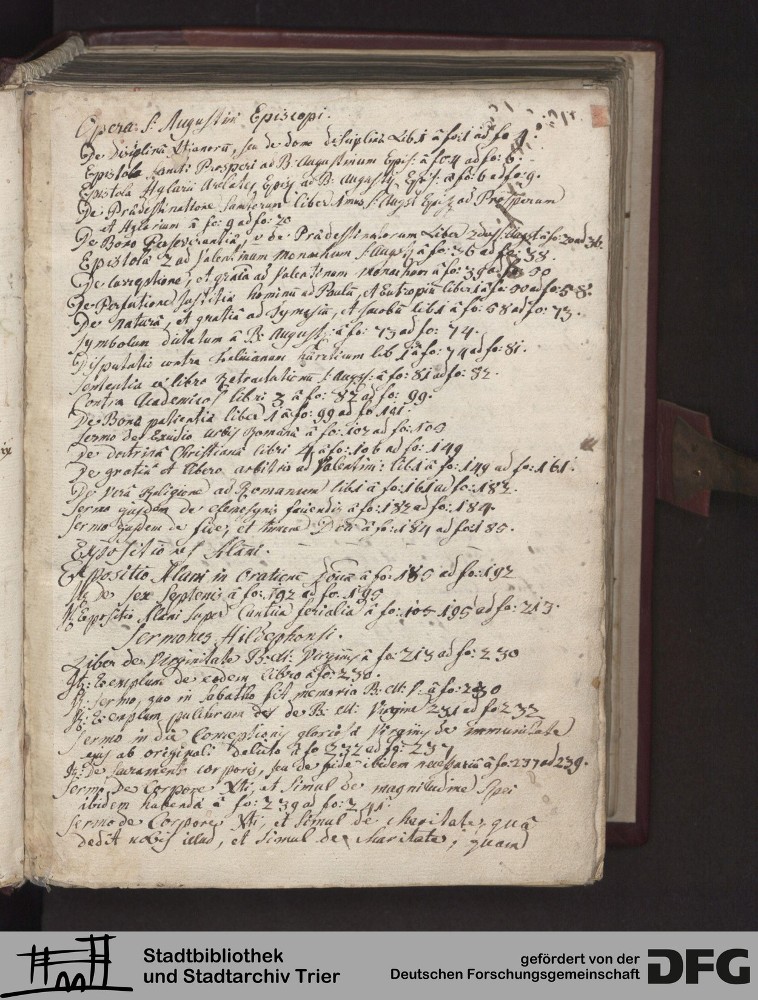 Opera S. Augustini Episcopi.
De disciplinâ Xtianorū, seu de domo disciplinæ Lib: 1 â fo: 1 ad fo 4.
Epistola Sancti Prosperi ad B: Augustinum Epis: â fo: 4 ad fo: 6.
Epistola Hylarii Arelates Episc ad B. Augusti Epis: â fo: 6 ad fo: 9.
De Prædestinatione Sanctorum Liber Unus S. August Episc ad Prosperum
et Hylarium â fo: 9 ad fo: 20
De Bono Perseverantiæ, v de Prædestinatorum Liber 2dus S. August â fo: 20 ad 36.
Epistola 2 ad Valentinum Monachum S. Augus â fo: 36 ad fo: 38.
De Correptione, et gratiâ ad Valentinum Monachum â fo: 39 ad fo: 50
De Perfectione Justitiæ hominū ad Paulū, et Eutropiū liber 1 â fo: 50 ad fo: 58.
De Naturâ, et gratiâ ad Tymasiū, et Jacobū lib 1 â fo: 58 ad fo: 73.
Symbolum dictatum â B: August: â fo: 73 ad fo: 74.
Disputatio contra Felicianum hæreticum lib 1 â fo: 74 ad fo: 81.
Sententia ex libro Retractationū S: Augus: â fo: 81 ad fo: 82.
Contra Academicos libri 3 â fo: 82 ad fo: 99.
De Bono patientiæ liber 1 â fo: 99 ad fo
Sermo de Excidio urbis Romanæ â fo: 103 ad fo: 105
De doctrinâ Christianâ libri 4 â fo: 106 ad fo: 149
De gratiâ et libero arbitrio ad Valentinū: lib: 1 â fo: 149 ad fo: 161.
De verâ Religione ad Romanum lib: 1 â fo: 161 ad fo: 182.
Sermo ejusdem de eleemosynis faciendis â fo: 182 ad fo: 184.
Sermo ejusdem de fide, et timore Dei â fo: 184 ad fo: 185.
Expositiones Alani.
Expositio Alani in orationē Dōicā â fo: 185 ad fo: 192
It: de sex septenis â fo: 192 ad fo: 195
It: Expositio Alani super Cantica ferialia â fo: 195 ad fo: 213.
Sermones Hildephonsi.
Liber de Virginitate B: M: Virginis â fo: 213 ad fo: 230
It: Exemplum de eodem libro â fo: 230.
It: Sermo, quo in sabatho fit memoria B: M: V: â fo: 230
It: Exemplum pulchrum de B: M: Virgine 231 ad fo: 232
Sermo in die Conceptionis gloriosæ Virginis de immunitate
ejus ab originali delicto â fo 232 ad fo: 237
It: de Sacramento corporis, seu de fide ibidem necessariâ â fo: 237 ad 239.
Sermo de Corpore Xti, et simul de magnitudine spei
ibidem habendæ â fo: 239 ad fo: 241.
Sermo de Corpore Xti, et simul de charitate, quâ
dedit nobis illud, et simul de charitate, quam
Stadtbibliothek
und Stadtarchiv Trier
gefördert von der
Deutschen Forschungsgemeinschaft
DFG